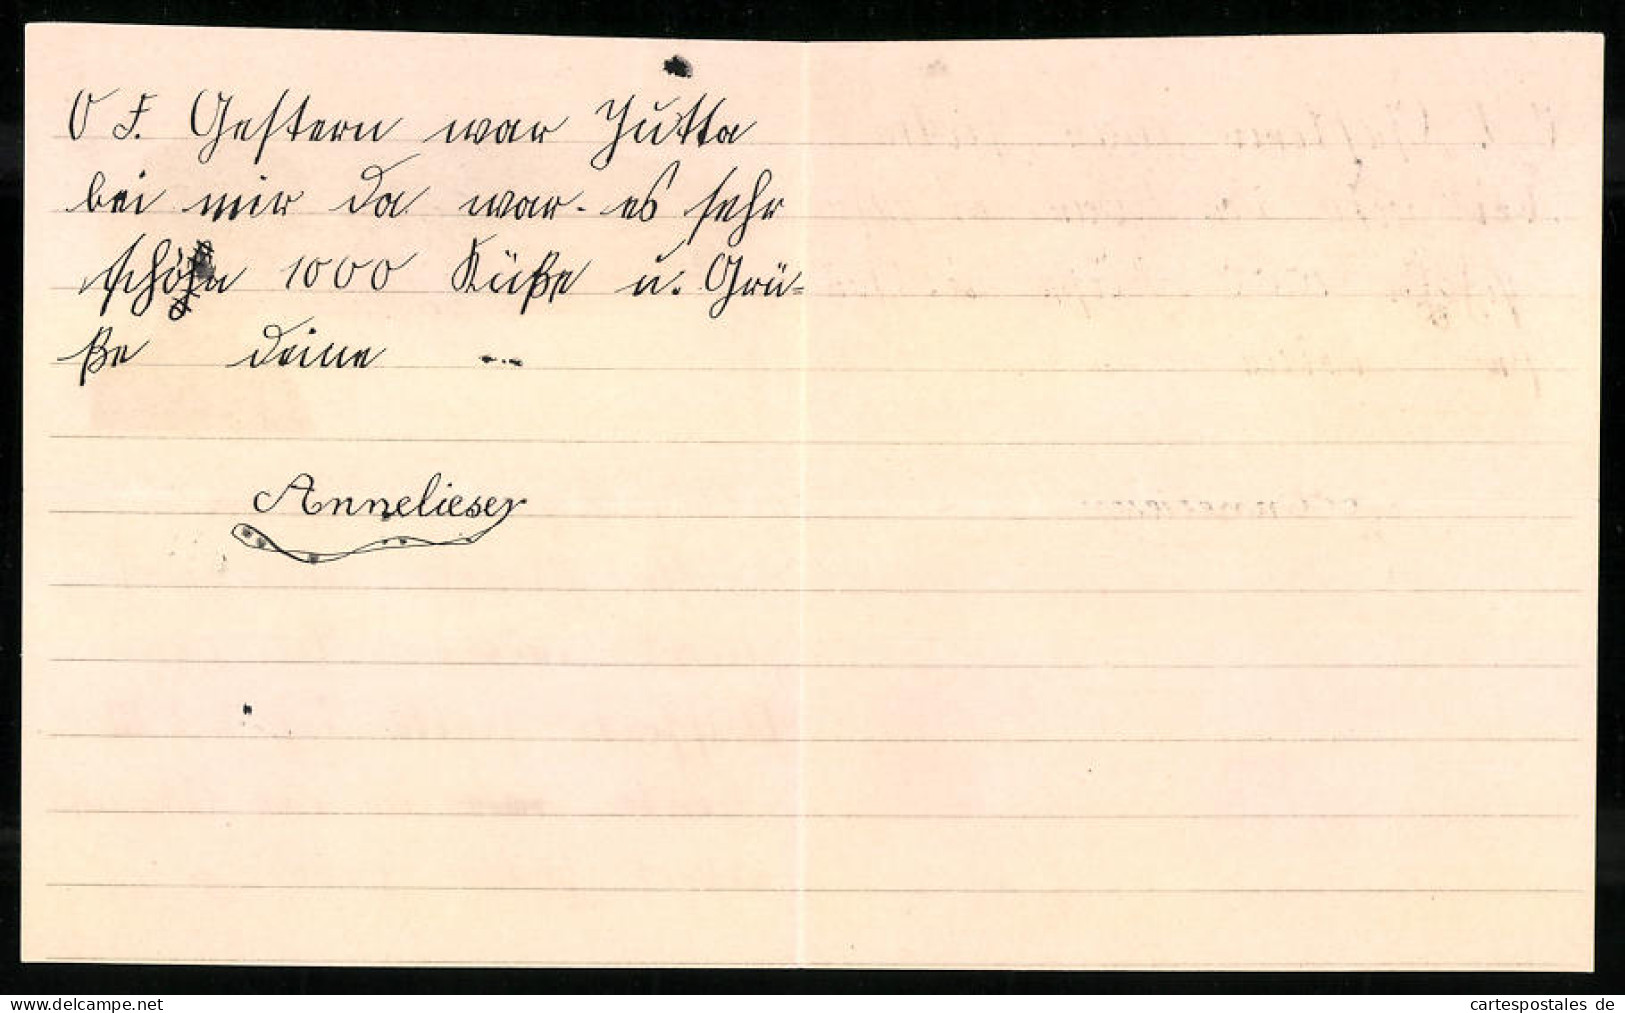 O F. Gestern war Jutta
bei mir da war es sehr
schön 1000 Küße u. Grü=
ße deine
Anneliese
cartespostales de